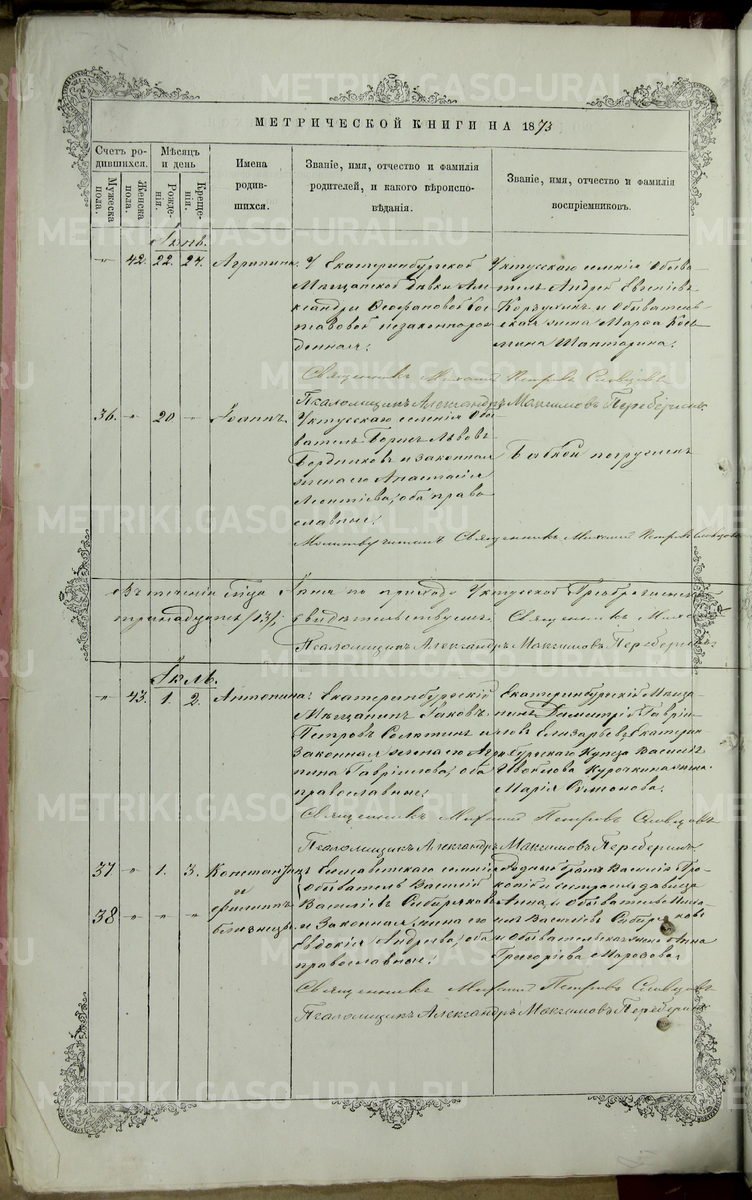 METRIKI.GASO-URAL.RU
МЕТРИЧЕСКОЙ КНИГИ НА 1873
Счетъ ро-
дившихся.
Мужеска
пола.
Женска
пола.
Мѣсяцъ
и день
Рожде-
нія.
Креще-
нія.
Имена
родив-
шихся.
Званіе, имя, отчество и фамилія
родителей, и какого вѣроиспо-
вѣданія.
Званіе, имя, отчество и фамилія
воспріемниковъ.
Іюнь.
" 42. 22. 24. Агрипина.
У Екатеринбургской
Мѣщанской дѣвки Але
ксандры Ѳеофановой
незаконнорож
денная.
Уктусскаго селенія Обыва-
тель Андрей Евгеніевъ
Коржукинъ и Обыватель-
ская жена Марѳа Козь
мина
Священникъ Михаилъ Петровъ Словцовъ
Псаломщикъ Александръ Максимовъ Переберинъ
36. " 20 " Іоаннъ.
Уктусскаго селенія Обы
ватель Борисъ Львовъ
Бородниковъ и законная
жена его Анастасія
Леонтіева, оба право
славные.
Бабкой погруженъ
Молитву читалъ Священникъ Михаилъ Петровъ Словцовъ
Въ теченіи Іюня по приходо Уктусской Преображенской
тринадцать /13/, свидѣтельствуемъ. Священникъ Миха
Псаломщикъ Александръ Максимовъ Переберинъ
Іюль.
" 43. 1. 2. Антонина.
Екатеринбургскій
Мѣщанинъ Іаковъ
Петровъ Селютинъ и
Законная жена его Агри
пина Гавріилова, оба
православные.
Екатеринбургскій Мѣща-
нинъ Димитрій Гаврі
иловъ Елизарьевъ Екатерин
бургскаго Купца Василія
Курочкина жена
Марія
Священникъ Михаилъ Петровъ Словцовъ
Псаломщикъ Александръ Максимовъ Переберинъ
37 " 1. 3. Константинъ
и
38 " " " Филиппъ
близнецы.
Елисаветскаго селенія
Обыватель Василій
Василіевъ Сибиряковъ
и Законная жена его
Евдокія Андреева, оба
православные.
Родный братъ Василій Про
копіевъ и сестра дѣвица
Анна, и Обыватель
Василіевъ Сибиряковъ
и Обывательская жена Анна
Григорьева Морозова
Священникъ Михаилъ Петровъ Словцовъ
Псаломщикъ Александръ Максимовъ Переберинъ